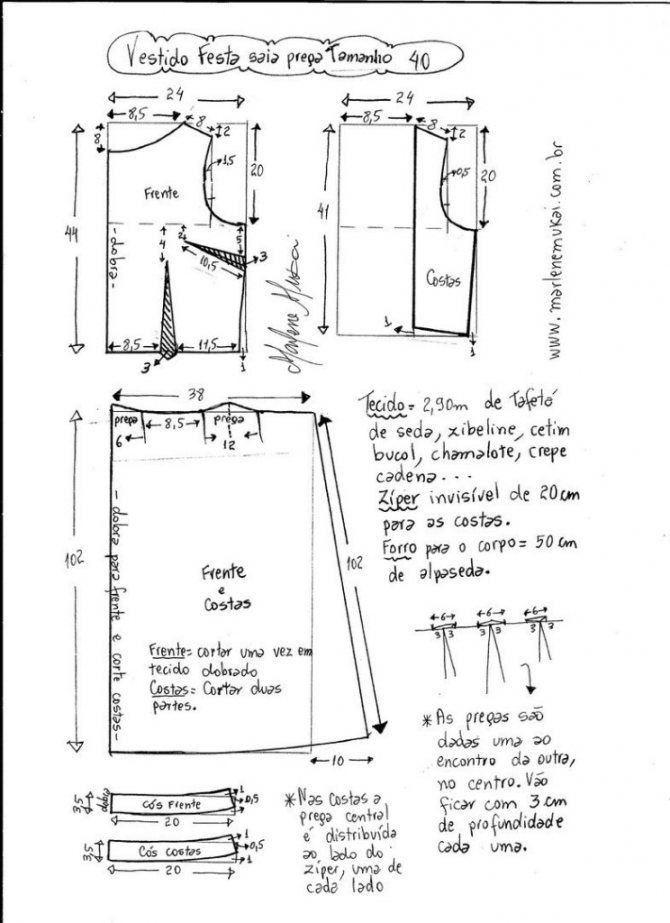 Vestido Festa saia prega Tamanho 40
24
8,5
8
2
8
1,5
20
Frente
44
- dobra -
4
2
5
10,5
3
8,5
11,5
3
1
Marlene Mukai
24
8,5
8
2
0,5
20
41
Costas
1
1
www.marlenemukai.com.br
38
prega
6
8,5
prega
12
102
102
- dobra para frente e corte costas -
Frente
e
Costas
Frente= cortar uma vez em
tecido dobrado
Costas= Cortar duas
partes.
10
Tecido= 2,90m de Tafetá
de seda, xibeline, cetim
bucol, chamalote, crepe
cadena...
Zíper invisível de 20cm
para as costas.
Forro para o corpo= 50 cm
de alpaseda.
6
6
6
3 3
3 3
3 3
*As pregas são
dadas uma ao
encontro da outra,
no centro. Vão
ficar com 3cm
de profundidade
cada uma.
3,5
dobra
Cós Frente
1
0,5
1
20
3,5
Cós costas
1
0,5
1
20
*Nas Costas a
prega central
é distribuída
ao lado do
zíper, uma de
cada lado